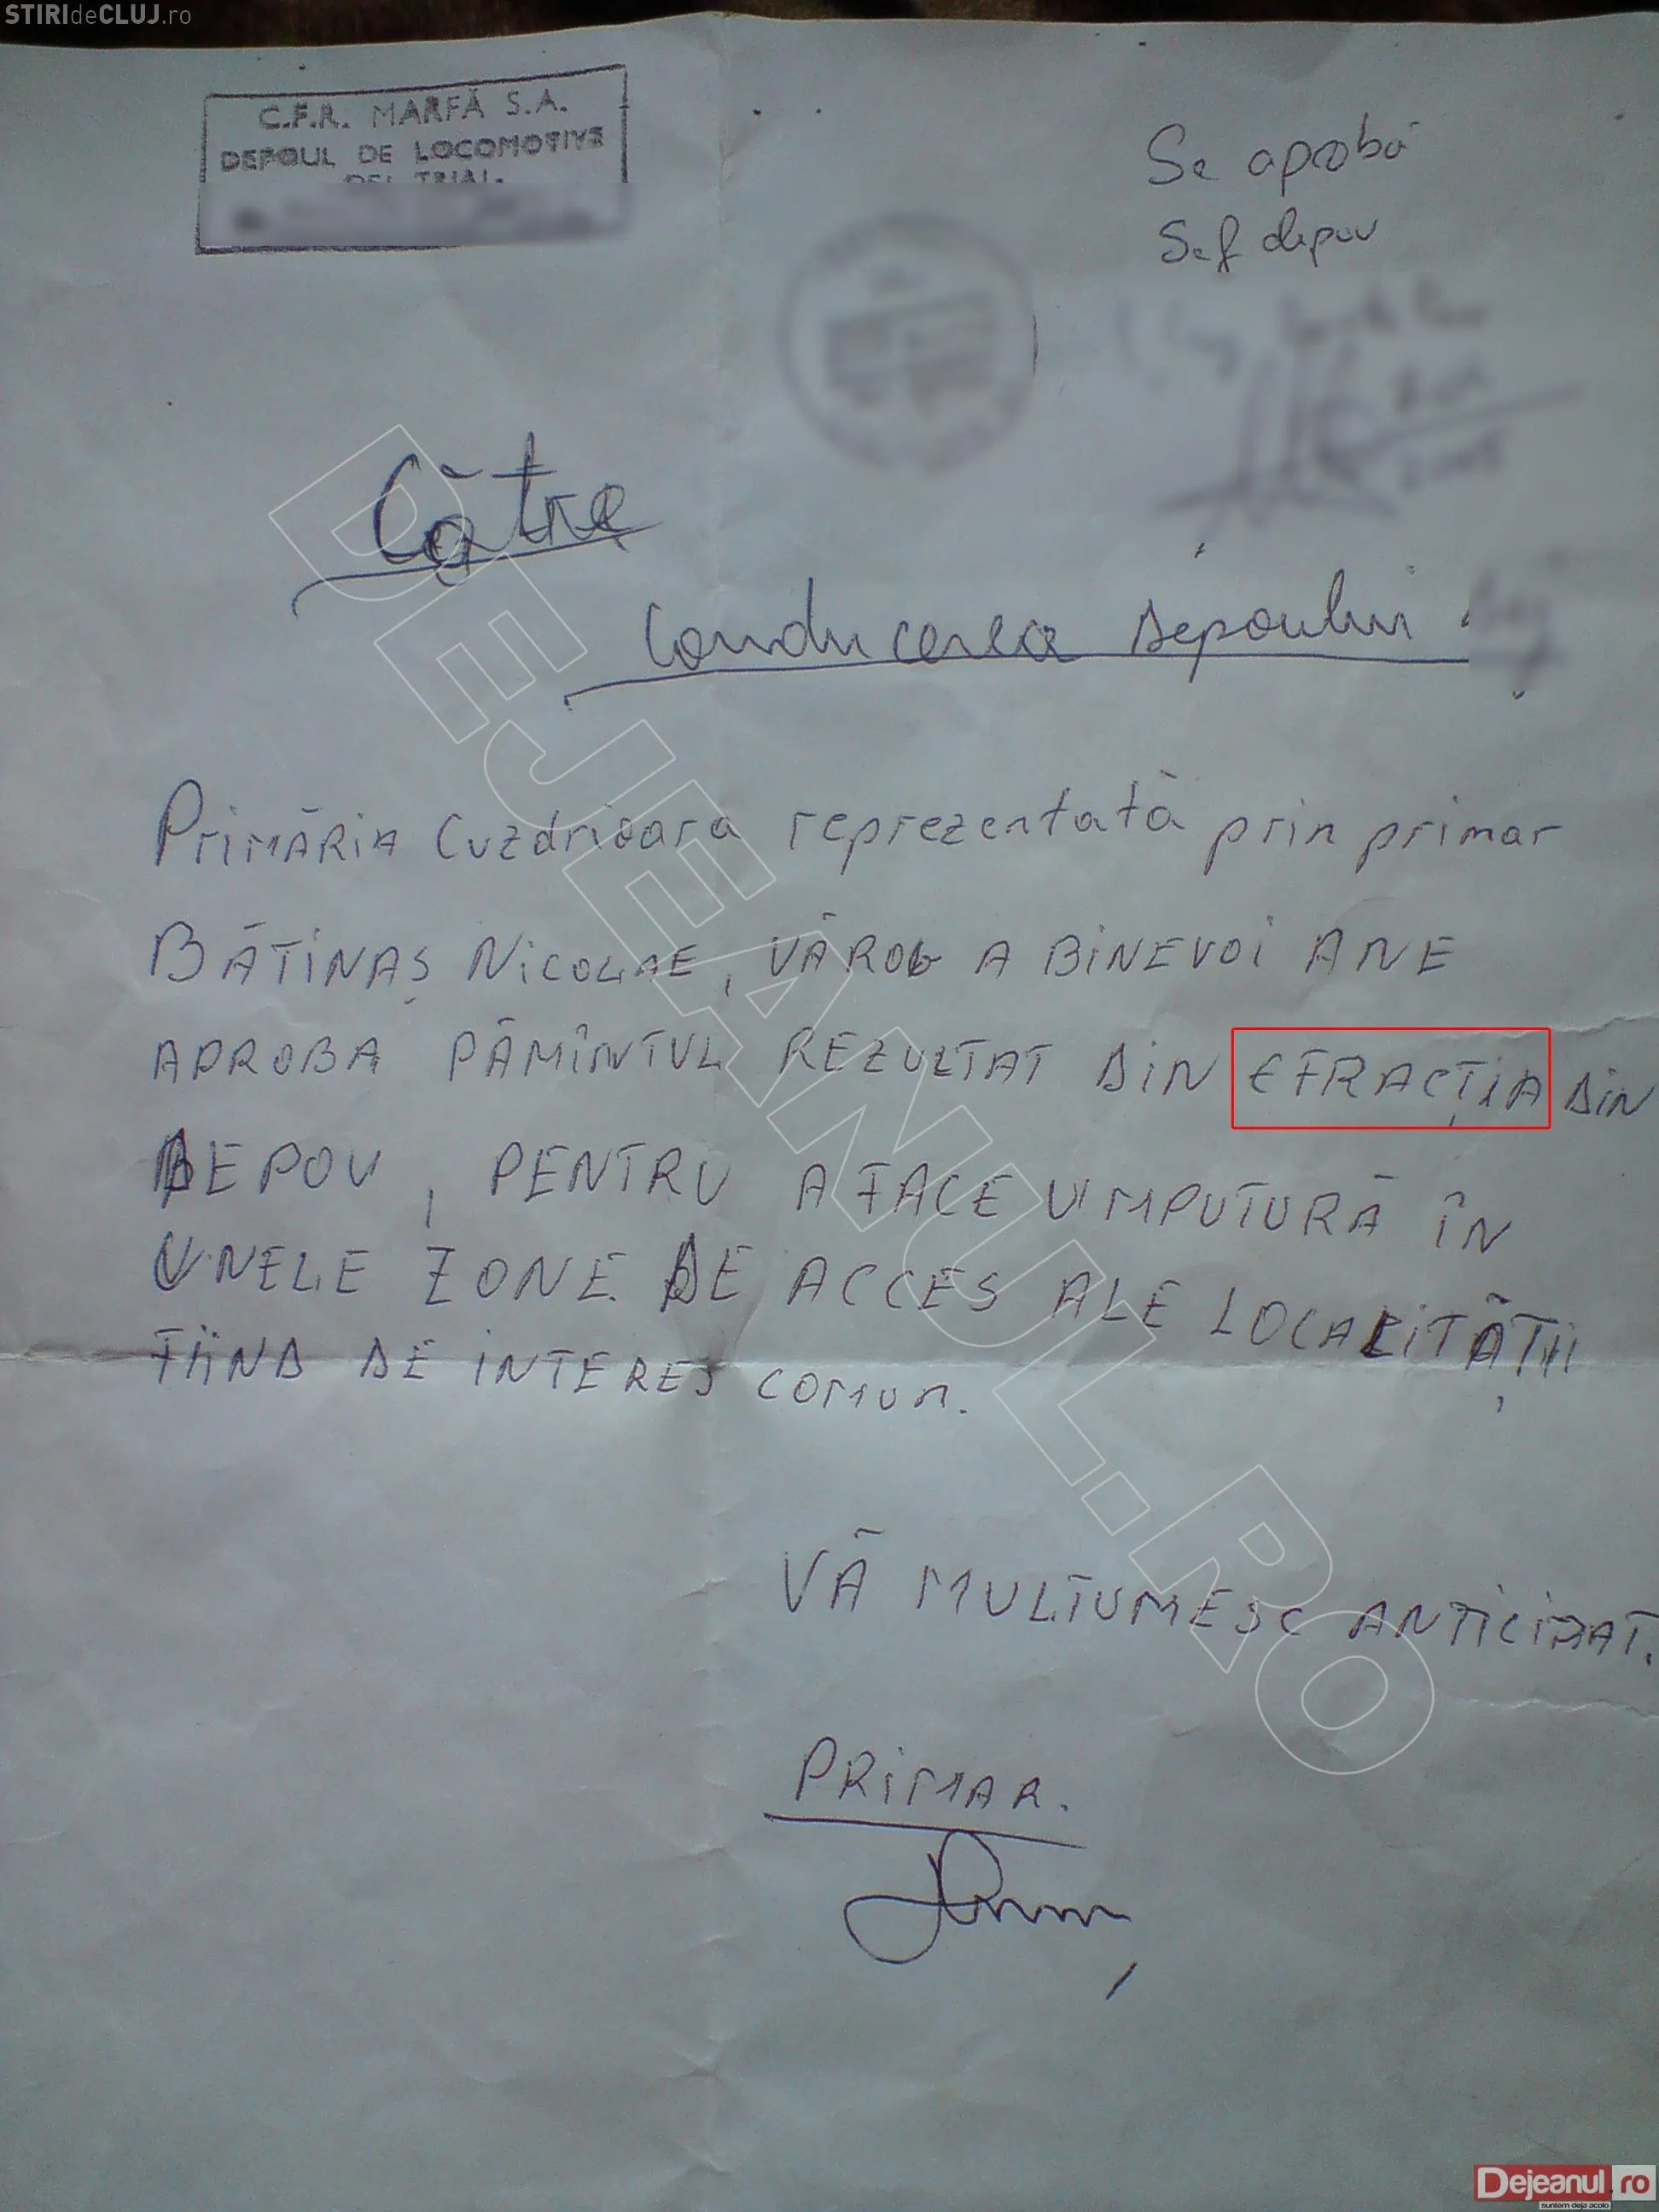 STIRIdeCLUJ.ro
C.F.R. MARFĂ S.A.
DEPOUL DE LOCOMOTIVE
Se aprobă
Sef depou
Către
Conducerea Depoului
Primăria Cuzdrioara reprezentată prin primar
BĂTINAȘ NICOLAE, VĂ ROG A BINEVOI A NE
APROBA PĂMÎNTUL REZULTAT DIN EFRACȚIA DIN
DEPOU, PENTRU A FACE UMPUTURĂ ÎN
UNELE ZONE DE ACCES ALE LOCALITĂȚII
FIIND DE INTERES COMUN.
VĂ MULTUMESC ANTICIPAT.
PRIMAR.
DEJEANUL.RO
Dejeanul.ro
suntem deja acolo